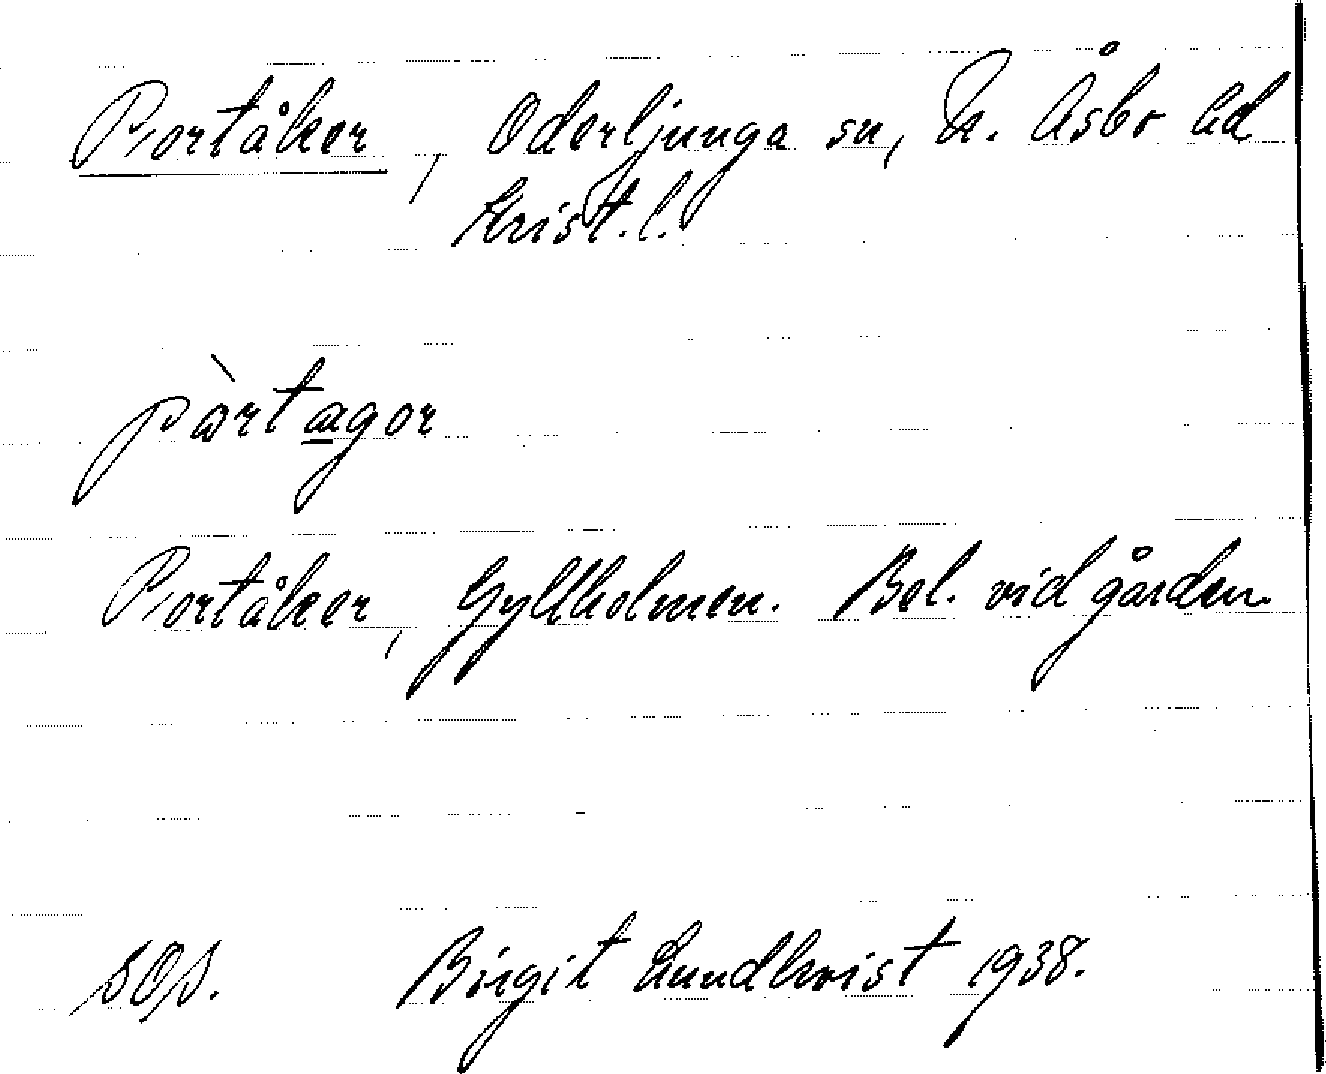 Portåker, Oderljunga sn, N. Åsbo hd
Krist. l.
pàrtagor
Portåker, Gyllholmen. Bel. vid gården
SOS. Birgit Lundkvist 1938.